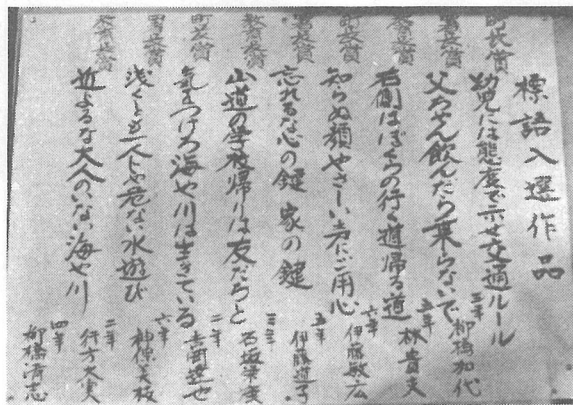 標語入選作品
町長賞 幼児には態度で示せ交通ルール 三年 柳橋加代
署長賞 父ちゃん飲んだら乗らないで 五年 林貴史
教育長賞 右側はぼくらの行く道帰る道 六年 伊藤敏広
町長賞 知らぬ顔やさしい声にご用心 五年 伊藤道子
署長賞 忘れるな心の鍵家の鍵 三年 石坂
教育長賞 山道の学校帰りは友だちと 二年 吉岡達也
町長賞 気をつけろ海や川は生きている 六年 神保美枝
署長賞 浅くとも一人じゃ危ない水遊び 二年 行方
教育長賞 近よるな大人のいない海や川 四年 柳橋清志